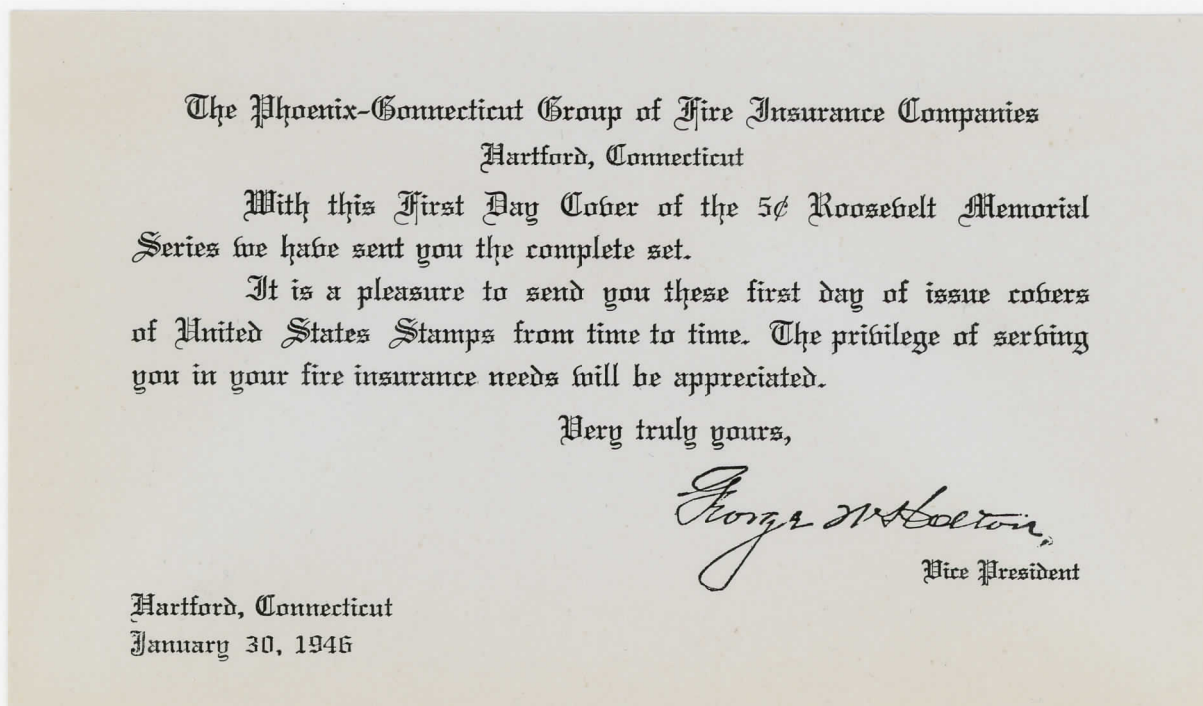 The Phoenix-Gonnecticut Group of Fire Insurance Companies
Hartford, Connecticut
With this First Day Cover of the 5¢ Roosevelt Memorial
Series we have sent you the complete set.
It is a pleasure to send you these first day of issue covers
of United States Stamps from time to time. The privilege of serving
you in your fire insurance needs will be appreciated.
Very truly yours,
George
Vice President
Hartford, Connecticut
January 30, 1946